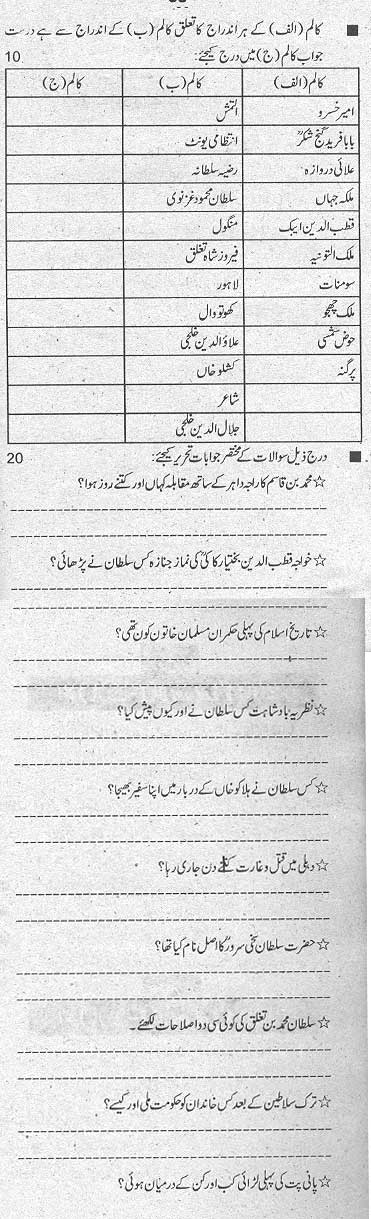 ■ کالم (الف) کے ہر اندراج کا تعلق کالم (ب) کے اندراج سے ہے درست
جواب کالم (ج) میں درج کیجئے: 10
کالم (الف) کالم (ب) کالم (ج)
امیر خسرو التمش
بابا فرید گنج شکرؒ انتظامی یونٹ
علائی دروازہ رضیہ سلطانہ
ملکہ جہاں سلطان محمود غزنوی
قطب الدین ایبک منگول
ملک التونیہ فیروز شاہ تغلق
سومنات لاہور
ملک چھجو کھوتووال
حوض شمسی علاؤ الدین خلجی
پرگنہ کشلو خاں
شاعر
جلال الدین خلجی
■ درج ذیل سوالات کے مختصر جوابات تحریر کیجئے: 20
☆ محمد بن قاسم کا راجہ داہر کے ساتھ مقابلہ کہاں اور کتنے روز ہوا؟
☆ خواجہ قطب الدین بختیار کاکیؒ کی نماز جنازہ کس سلطان نے پڑھائی؟
☆ تاریخ اسلام کی پہلی حکمران مسلمان خاتون کون تھی؟
☆ نظریہ بادشاہت کس سلطان نے اور کیوں پیش کیا؟
☆ کس سلطان نے ہلاکو خاں کے دربار میں اپنا سفیر بھیجا؟
☆ دہلی میں قتل و غارت کتنے دن جاری رہا؟
☆ حضرت سلطان سخی سرورؒ کا اصل نام کیا تھا؟
☆ سلطان محمد بن تغلق کی کوئی سی دو اصلاحات لکھئے۔
☆ ترک سلاطین کے بعد کس خاندان کو حکومت ملی اور کیسے؟
☆ پانی پت کی پہلی لڑائی کب اور کن کے درمیان ہوئی؟